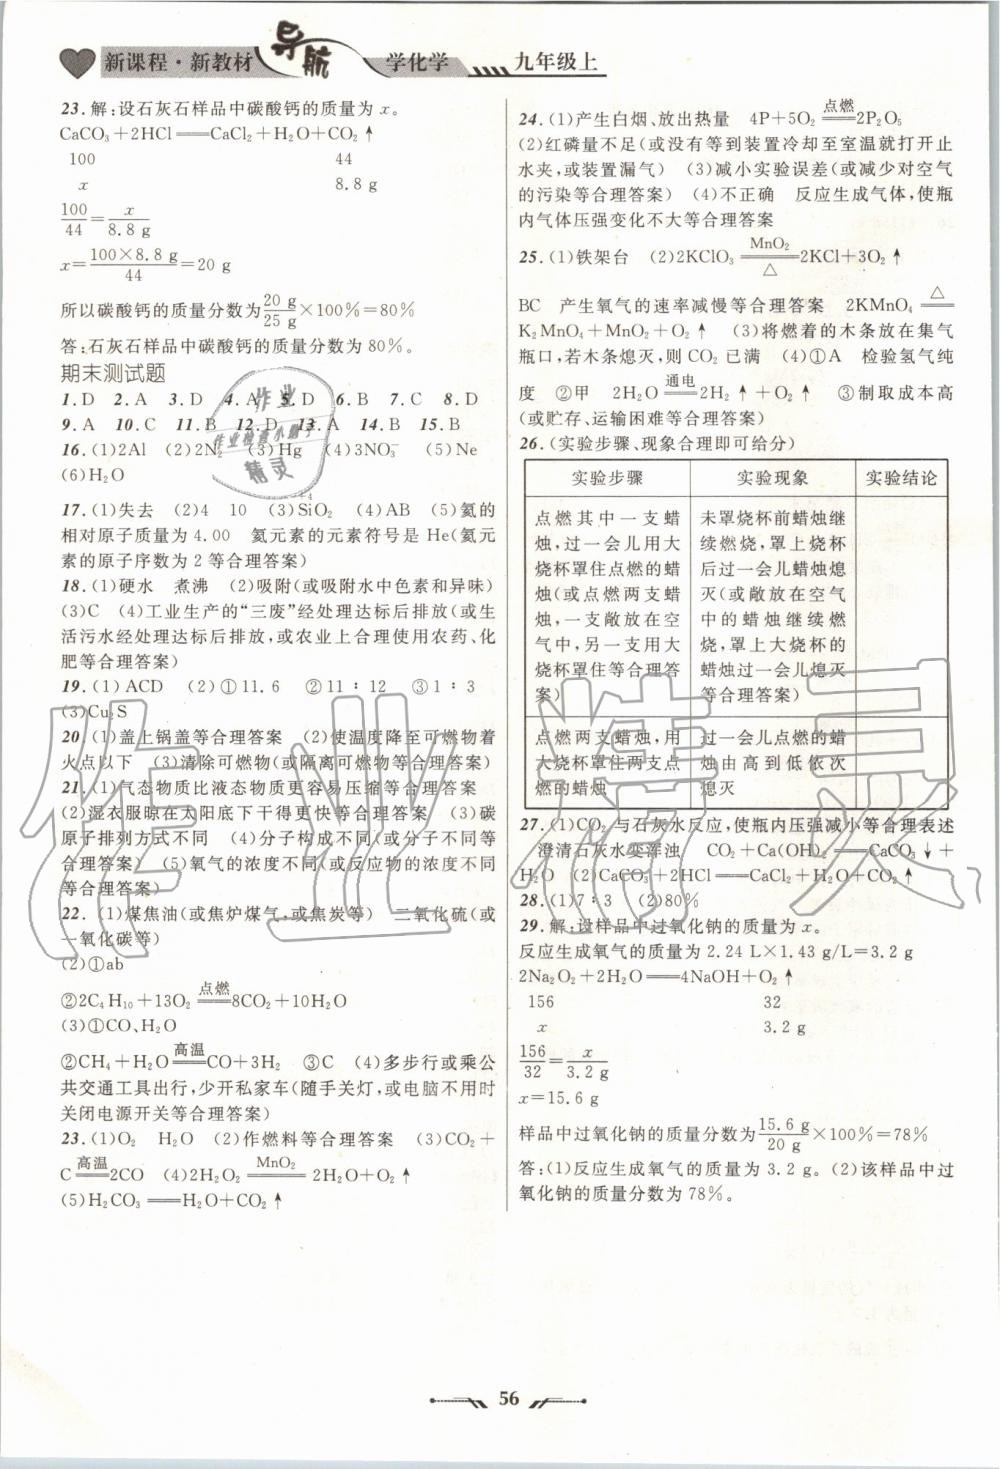 新课程·新教材 导航 学化学 九年级上
23.解:设石灰石样品中碳酸钙的质量为x。
CaCO₃+2HCl══CaCl₂+H₂O+CO₂↑
100 44
x 8.8 g
100/44=x/8.8 g
x=100×8.8 g/44=20 g
所以碳酸钙的质量分数为20 g/25 g×100%=80%
答:石灰石样品中碳酸钙的质量分数为80%。
期末测试题
1.D 2.A 3.D 4.A 5.D 6.B 7.C 8.D
9.A 10.C 11.B 12.D 13.A 14.B 15.B
16.(1)2Al (2)2N₂ (3)Hg (4)3NO₃⁻ (5)Ne
(6)H₂O
17.(1)失去 (2)4 10 (3)SiO₂ (4)AB (5)氦的
相对原子质量为4.00 氦元素的元素符号是He(氦元
素的原子序数为2等合理答案)
18.(1)硬水 煮沸 (2)吸附(或吸附水中色素和异味)
(3)C (4)工业生产的“三废”经处理达标后排放(或生
活污水经处理达标后排放,或农业上合理使用农药、化
肥等合理答案)
19.(1)ACD (2)①11.6 ②11∶12 ③1∶3
(3)Cu₂S
20.(1)盖上锅盖等合理答案 (2)使温度降至可燃物着
火点以下 (3)清除可燃物(或隔离可燃物等合理答案)
21.(1)气态物质比液态物质更容易压缩等合理答案
(2)湿衣服晾在太阳底下干得更快等合理答案 (3)碳
原子排列方式不同 (4)分子构成不同(或分子不同等
合理答案) (5)氧气的浓度不同(或反应物的浓度不同
等合理答案)
22.(1)煤焦油(或焦炉煤气,或焦炭等) 二氧化硫(或
一氧化碳等)
(2)①ab
②2C₄H₁₀+13O₂ 点燃══ 8CO₂+10H₂O
(3)①CO、H₂O
②CH₄+H₂O 高温══ CO+3H₂ ③C (4)多步行或乘公
共交通工具出行,少开私家车(随手关灯,或电脑不用时
关闭电源开关等合理答案)
23.(1)O₂ H₂O (2)作燃料等合理答案 (3)CO₂+
C 高温══ 2CO (4)2H₂O₂ MnO₂══ 2H₂O+O₂↑
(5)H₂CO₃══H₂O+CO₂↑
24.(1)产生白烟、放出热量 4P+5O₂ 点燃══ 2P₂O₅
(2)红磷量不足(或没有等到装置冷却至室温就打开止
水夹,或装置漏气) (3)减小实验误差(或减少对空气
的污染等合理答案) (4)不正确 反应生成气体,使瓶
内气体压强变化不大等合理答案
25.(1)铁架台 (2)2KClO₃ MnO₂══△ 2KCl+3O₂↑
BC 产生氧气的速率减慢等合理答案 2KMnO₄ △══
K₂MnO₄+MnO₂+O₂↑ (3)将燃着的木条放在集气
瓶口,若木条熄灭,则CO₂已满 (4)①A 检验氢气纯
度 ②甲 2H₂O 通电══ 2H₂↑+O₂↑ ③制取成本高
(或贮存、运输困难等合理答案)
26.(实验步骤、现象合理即可给分)
实验步骤 实验现象 实验结论
点燃其中一支蜡
烛,过一会儿用大
烧杯罩住点燃的蜡
烛(或点燃两支蜡
烛,一支敞放在空
气中,另一支用大
烧杯罩住等合理答
案)
未罩烧杯前蜡烛继
续燃烧,罩上烧杯
后过一会儿蜡烛熄
灭(或敞放在空气
中的蜡烛继续燃
烧,罩上大烧杯的
蜡烛过一会儿熄灭
等合理答案)
点燃两支蜡烛,用
大烧杯罩住两支点
燃的蜡烛
过一会儿点燃的蜡
烛由高到低依次
熄灭
27.(1)CO₂与石灰水反应,使瓶内压强减小等合理表述
澄清石灰水变浑浊 CO₂+Ca(OH)₂══CaCO₃↓+
H₂O (2)CaCO₃+2HCl══CaCl₂+H₂O+CO₂↑
28.(1)7∶3 (2)80%
29.解:设样品中过氧化钠的质量为x。
反应生成氧气的质量为2.24 L×1.43 g/L=3.2 g
2Na₂O₂+2H₂O══4NaOH+O₂↑
156 32
x 3.2 g
156/32=x/3.2 g
x=15.6 g
样品中过氧化钠的质量分数为15.6 g/20 g×100%=78%
答:(1)反应生成氧气的质量为3.2 g。(2)该样品中过
氧化钠的质量分数为78%。
56
作业精灵
作业
作业检查小助手
精灵